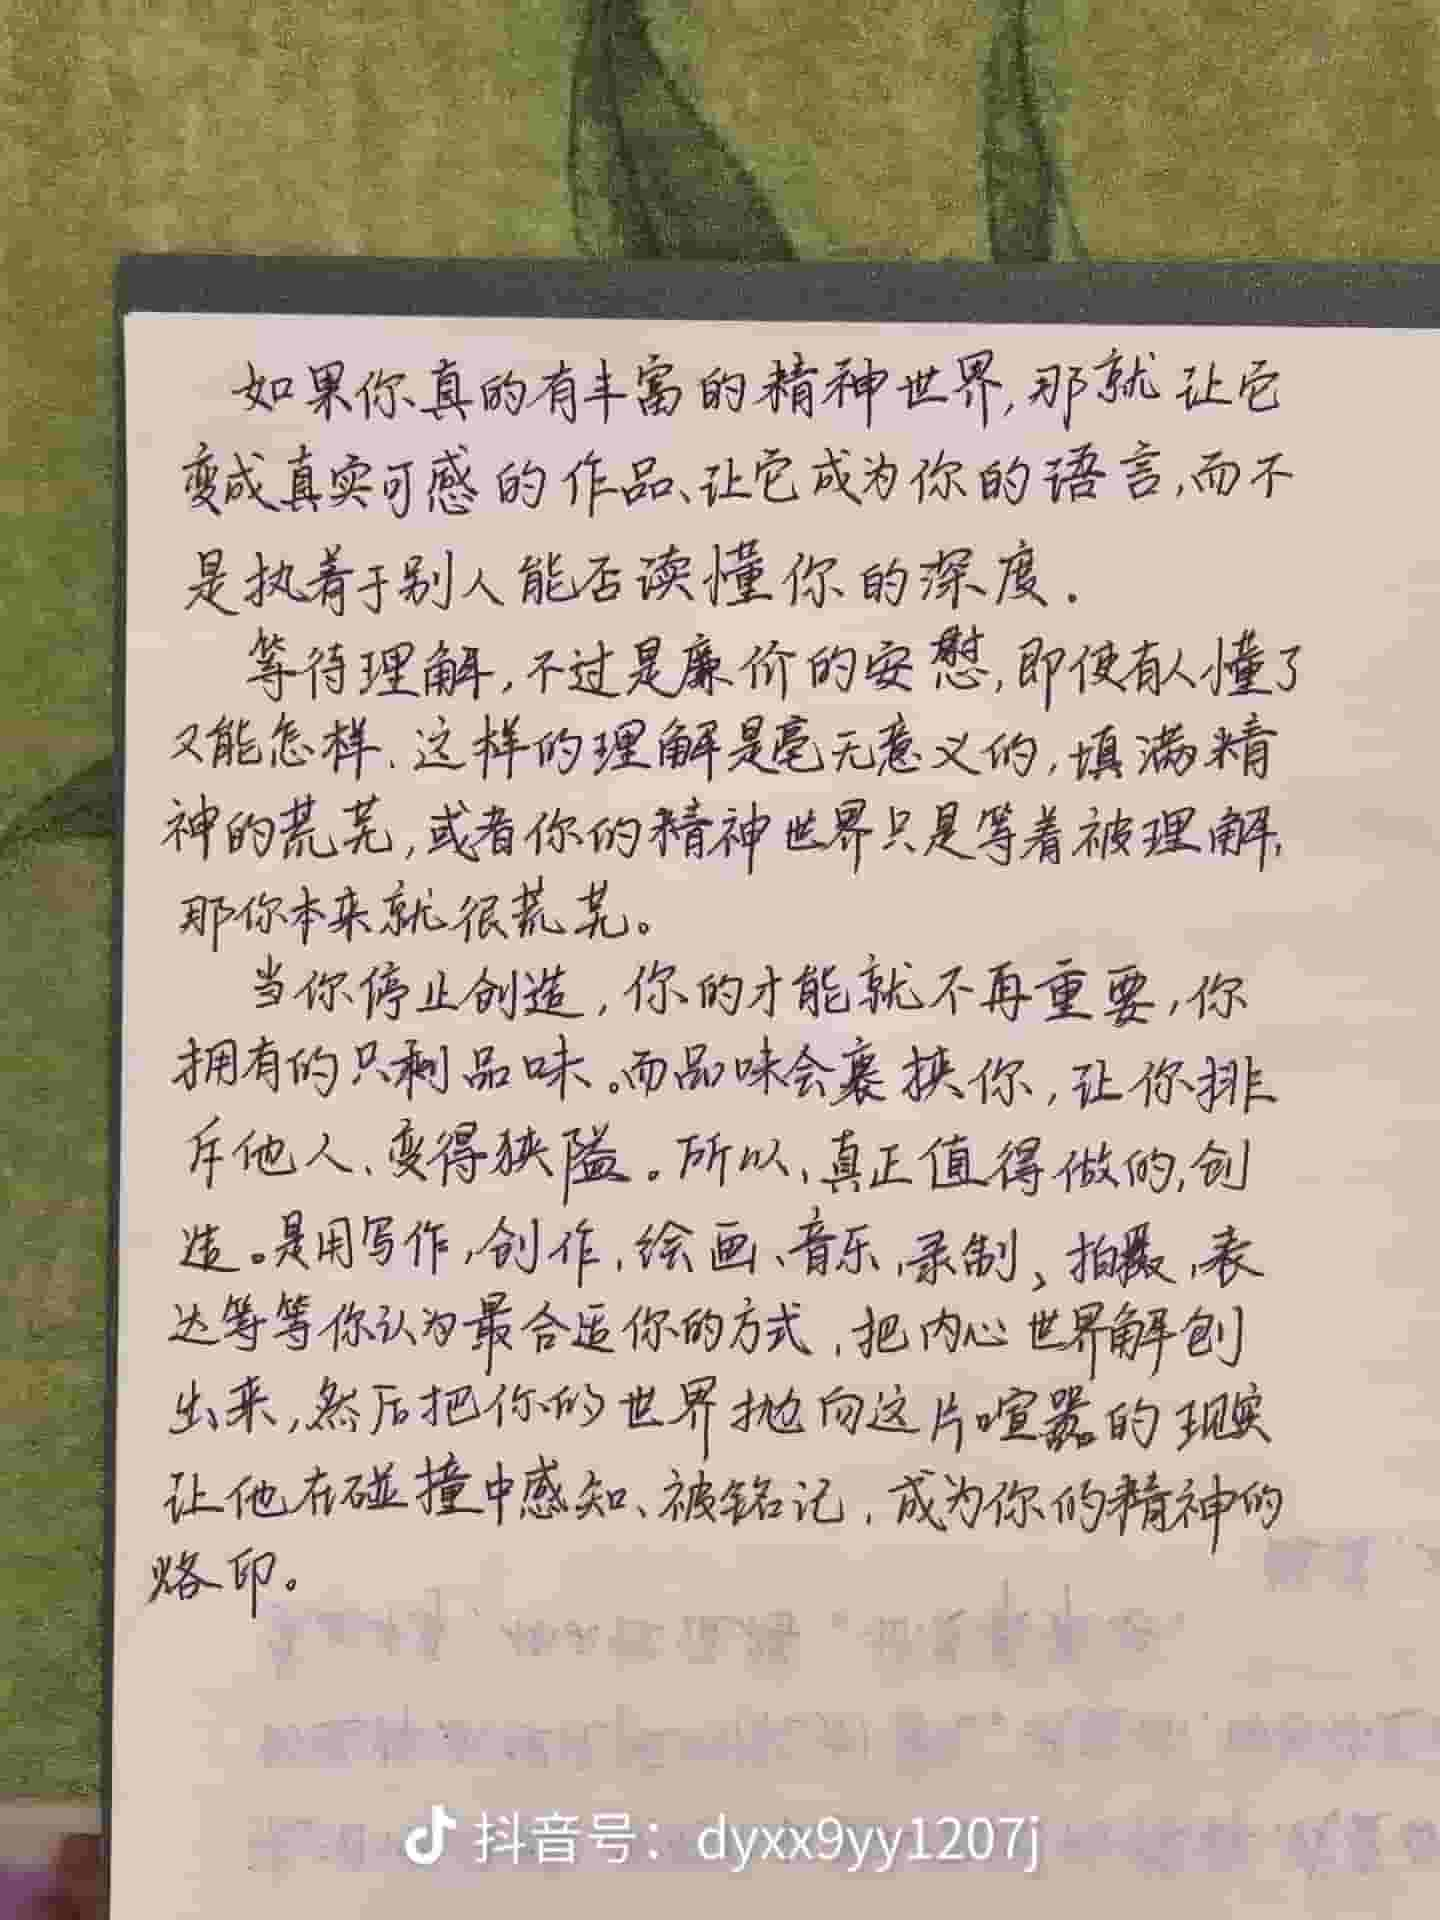 如果你真的有丰富的精神世界,那就让它
变成真实可感的作品、让它成为你的语言,而不
是执着于别人能否读懂你的深度.
等待理解,不过是廉价的安慰,即使有人懂了
又能怎样、这样的理解是毫无意义的,填满精
神的荒芜,或者你的精神世界只是等着被理解,
那你本来就很荒芜。
当你停止创造,你的才能就不再重要,你
拥有的只剩品味。而品味会裹挟你,让你排
斥他人、变得狭隘。所以、真正值得做的,创
造。是用写作,创作,绘画、音乐,录制、拍摄,表
达等等你认为最合适你的方式,把内心世界解刨
出来,然后把你的世界抛向这片喧嚣的现实
让他在碰撞中感知、被铭记,成为你的精神的
烙印。
抖音号：dyxx9yy1207j